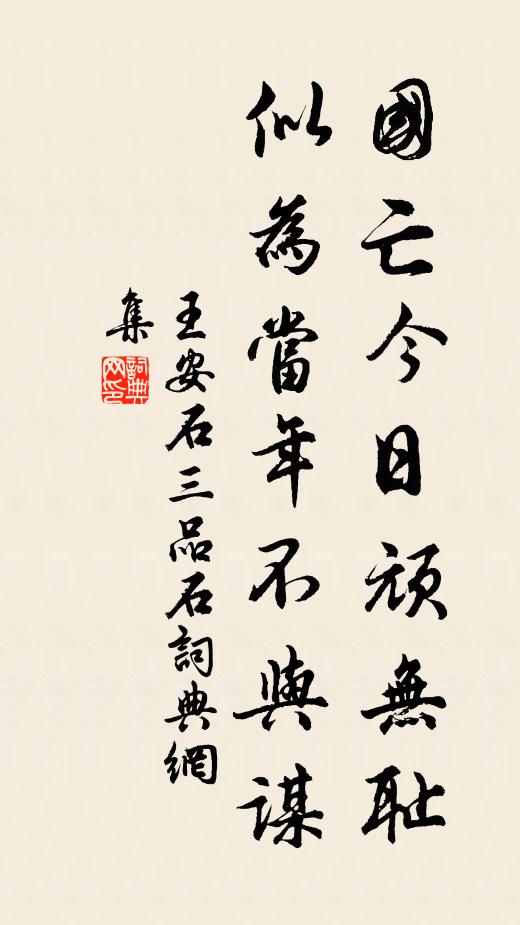 國亡今日頑無恥
似為當年不與謀
王安石三品石詞典網
集
詞典網印